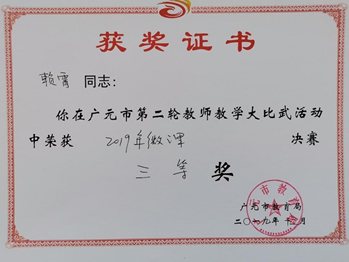 获奖证书
赖霄 同志：
你在广元市第二轮教师教学大比武活动
中荣获 2019年微课 决赛
三等 奖
广元市教育局
二〇一九年十二月